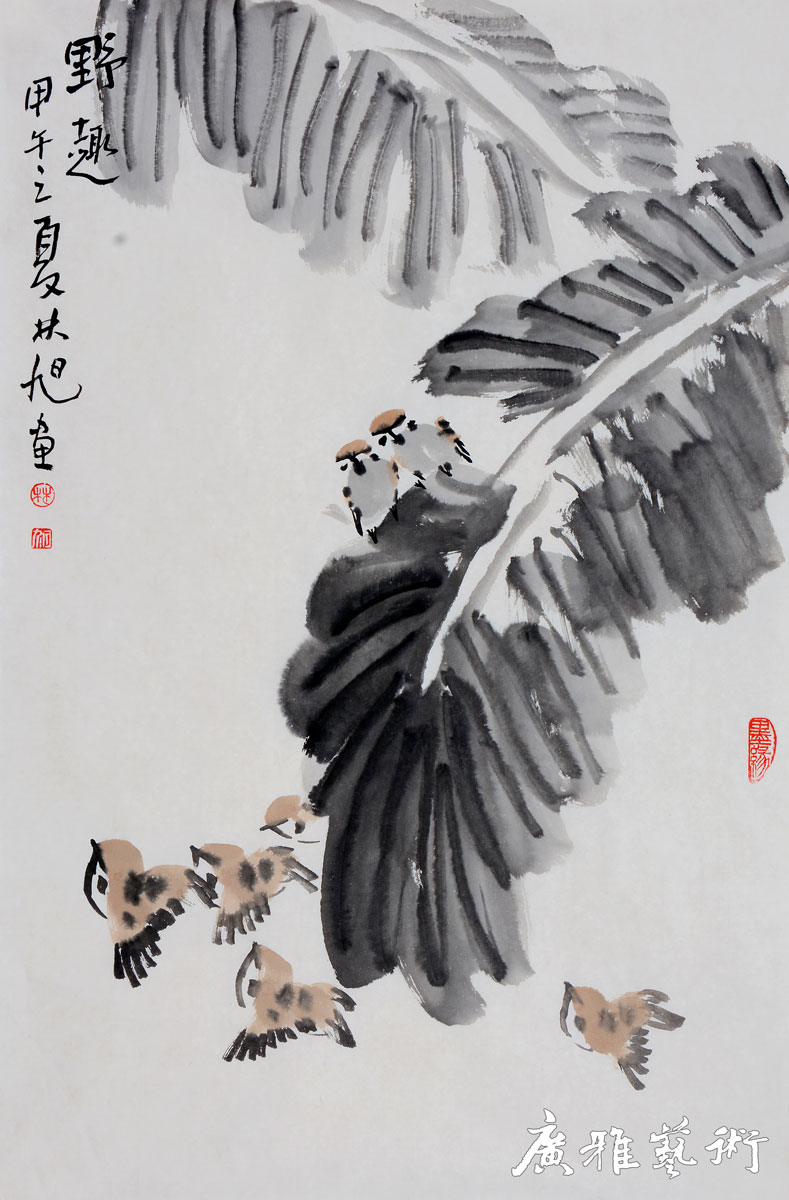 野趣
甲午之夏林旭画
墨缘
廣雅藝術